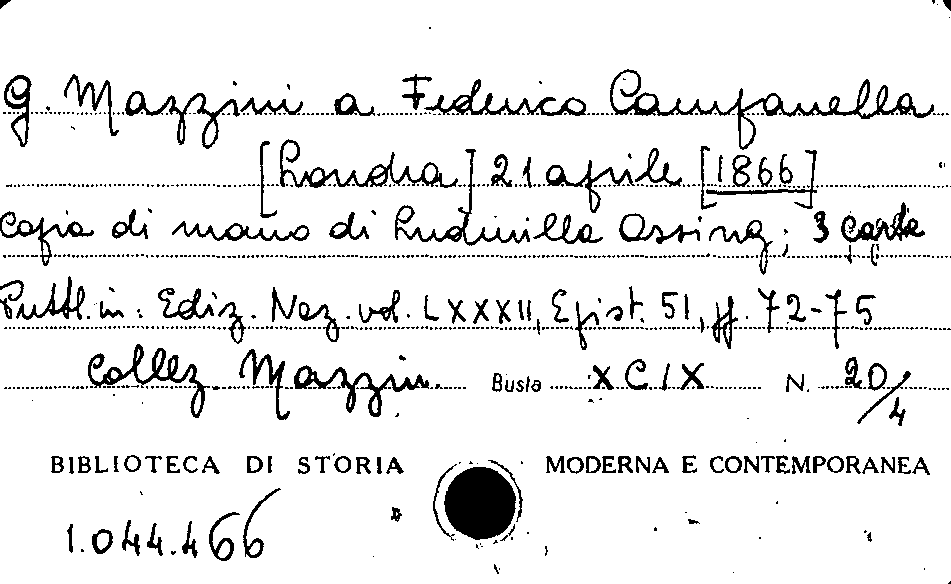 G. Mazzini a Federico Campanella
[Londra] 21 aprile [1866]
Copia di mano di Ludmilla Assing; 3 carte
Pubbl. in: Ediz. Naz. vol. LXXXII, Epist. 51, pp. 72-75
Collez. Mazzini. Busta XCIX N. 20/4
BIBLIOTECA DI STORIA MODERNA E CONTEMPORANEA
1.044.466